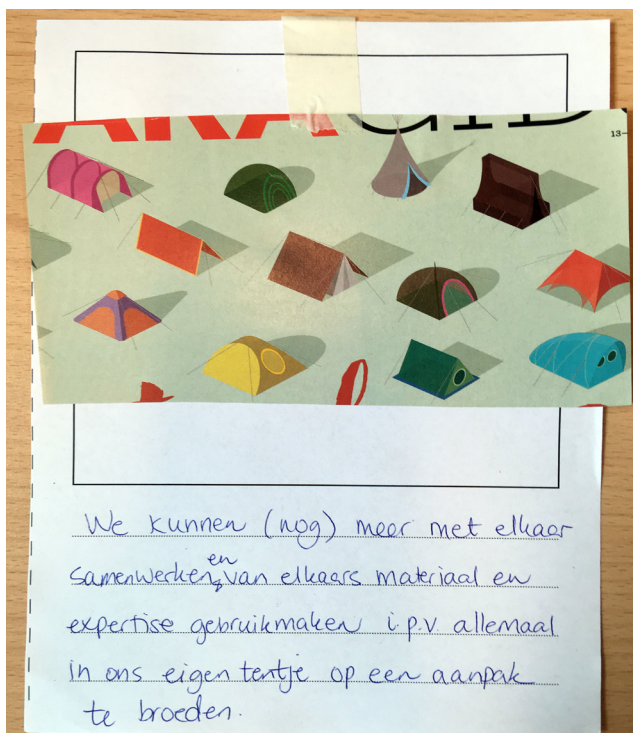 13-
We kunnen (nog) meer met elkaar
samenwerken en van elkaars materiaal en
expertise gebruikmaken i.p.v allemaal
in ons eigen tentje op een aanpak
te broeden.